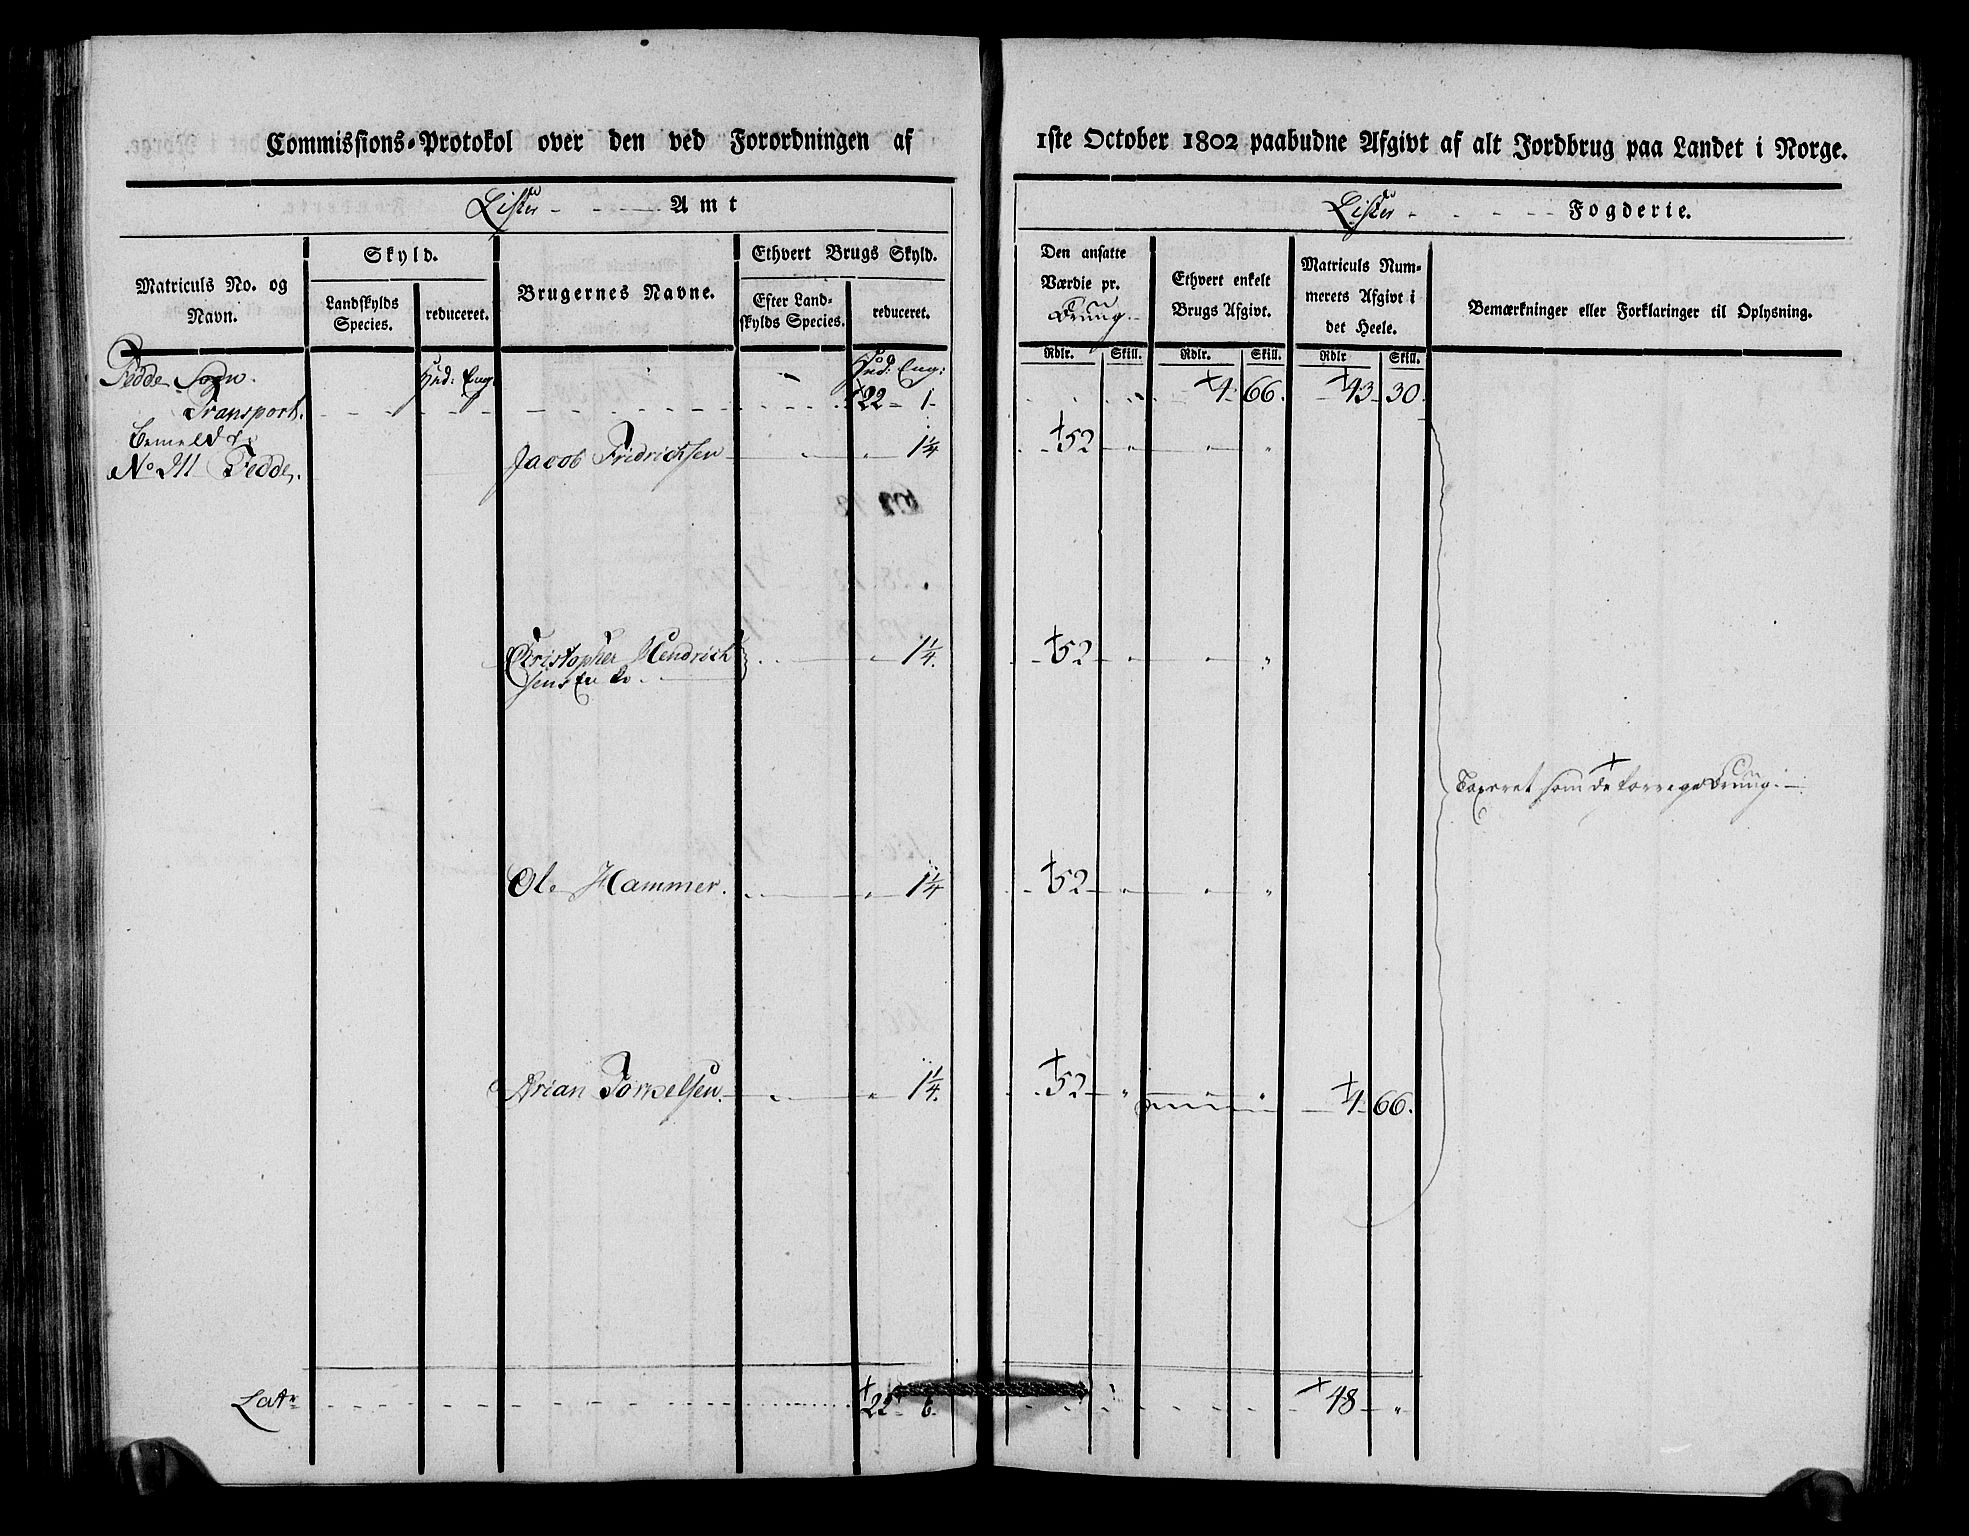 Commissions-Protokol over den ved Forordningen af
1ste October 1802 paabudne Afgivt af alt Jordbrug paa Landet i Norge.
Lister Amt
Lister Fogderie.
Matriculs No. og Navn.
Skyld.
Landskylds Species.
reduceret.
Brugernes Navne.
Ethvert Brugs Skyld.
Efter Landskylds Species.
reduceret.
Den ansatte Værdie pr. Brug.
Rdlr. Skill.
Ethvert enkelt Brugs Afgivt.
Rdlr. Skill.
Matriculs Nummerets Afgivt i det Heele.
Rdlr Skill.
Bemærkninger eller Forklaringer til Oplysning.
Fedde Sogn. Hud: Eng: Hud: Eng:
Transport. 22 - 1 - 4 66. 43 30.
Bemeldte
No 211 Fedde. Jacob Fridrichsen 1 1/4 52
Christopher Hendrich 1 1/4. 52
sens Enke
Taxeret som de forrige Brug
Ole Hammer. 1 1/4 52
Arian Torkelsen. 1 1/4. 52 4 66.
Latr 22 - 6 48